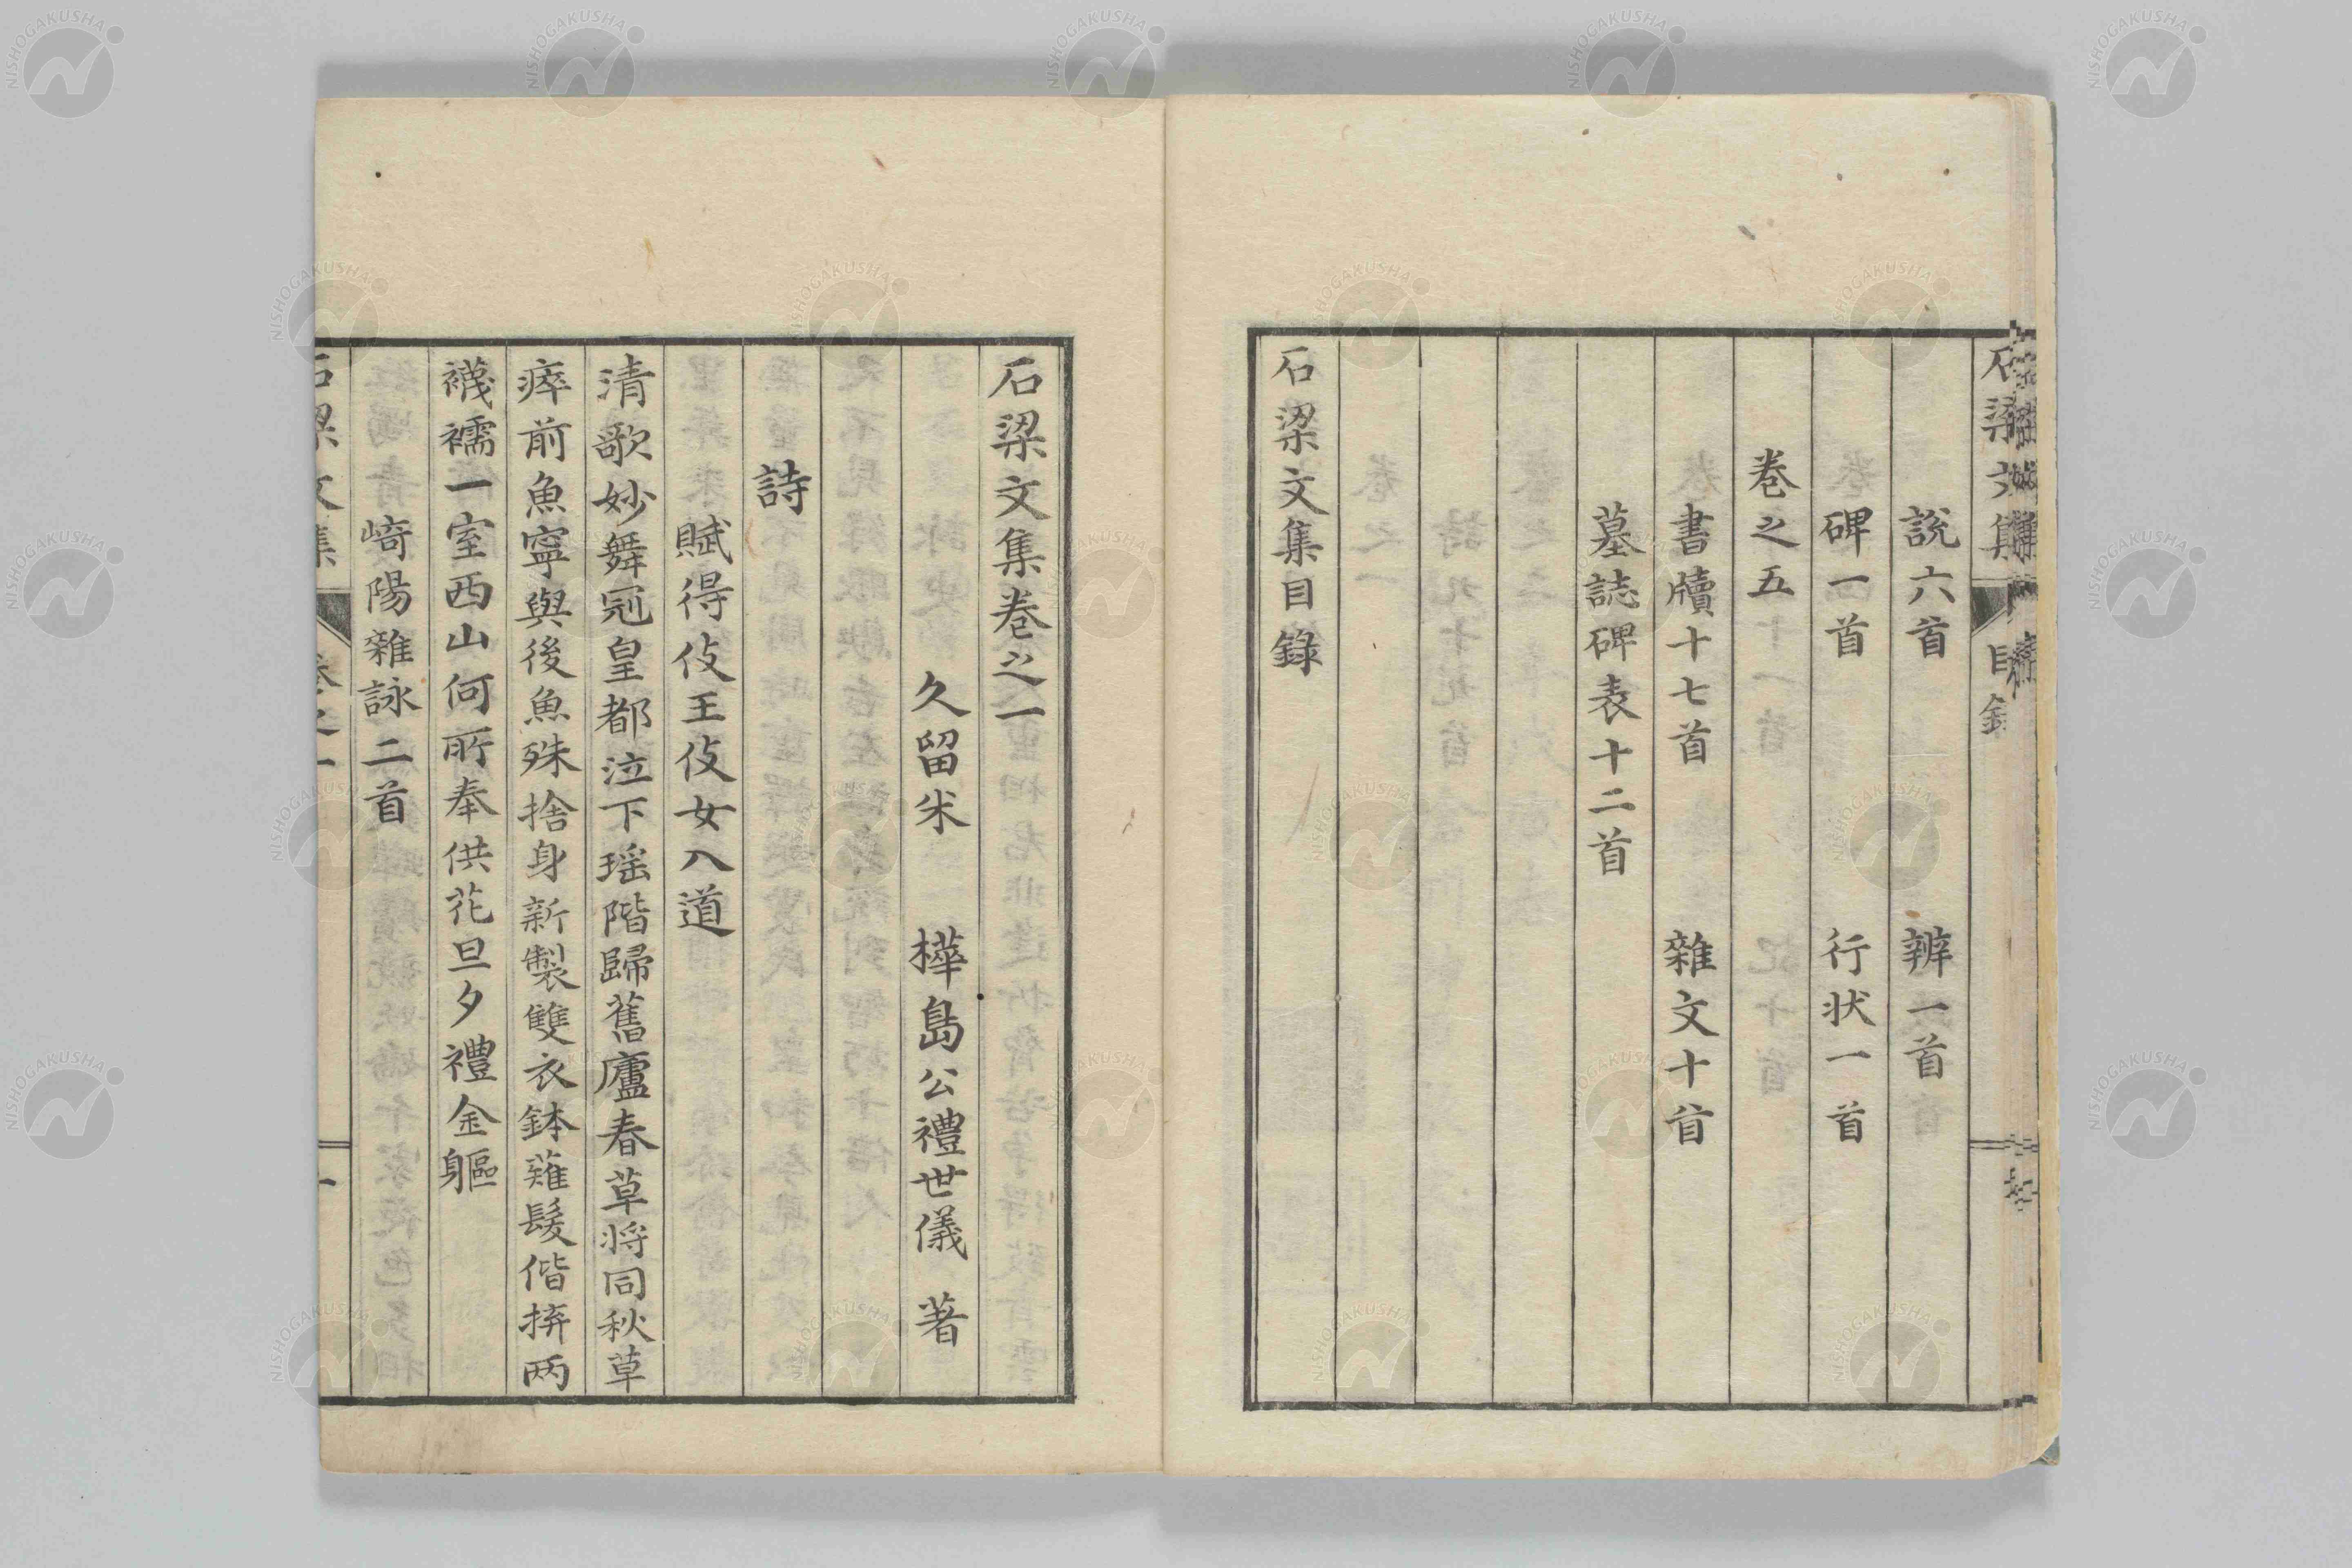 說六首　辨一首
碑一首　行状一首
巻之五
書牘十七首　雜文十首
墓誌碑表十二首
石梁文集目錄
石梁文集巻之一
久留米　樺島公禮世儀　著
詩
賦得伎王伎女入道
清歌妙舞冠皇都泣下瑶階歸舊廬春草将同秋草
瘁前魚寧與後魚殊捨身新製雙衣鉢薙髮偕擠两
襪襦一室西山何所奉供花旦夕禮金軀
崎陽雜詠二首
石梁文集　巻之一　一
NISHOGAKUSHA